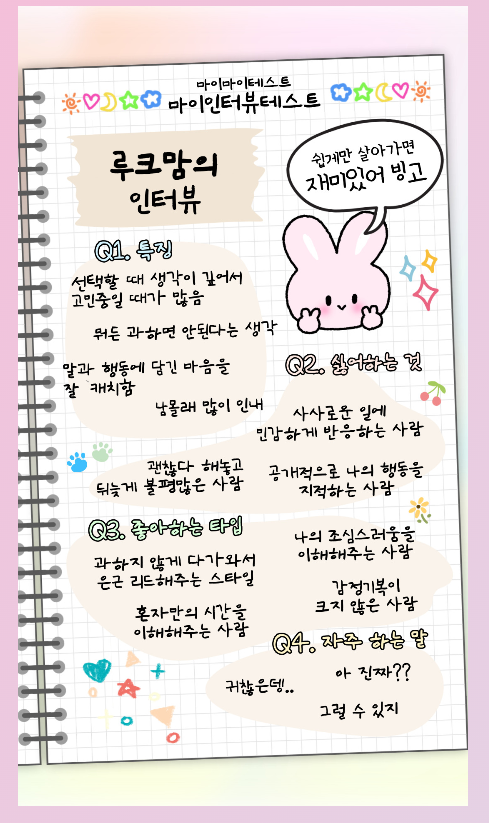 마이마이테스트
마이인터뷰테스트
루크맘의
인터뷰
쉽게만 살아가면
재미있어 빙고
Q1. 특징
선택할 때 생각이 깊어서
고민중일 때가 많음
뭐든 과하면 안된다는 생각
말과 행동에 담긴 마음을
잘 캐치함
남몰래 많이 인내
Q2. 싫어하는 것
사사로운 일에
민감하게 반응하는 사람
괜찮다 해놓고
뒤늦게 불평많은 사람
공개적으로 나의 행동을
지적하는 사람
Q3. 좋아하는 타입
나의 조심스러움을
이해해주는 사람
과하지 않게 다가와서
은근 리드해주는 스타일
감정기복이
크지 않은 사람
혼자만의 시간을
이해해주는 사람
Q4. 자주 하는 말
아 진짜??
귀찮은뎅..
그럴 수 있지